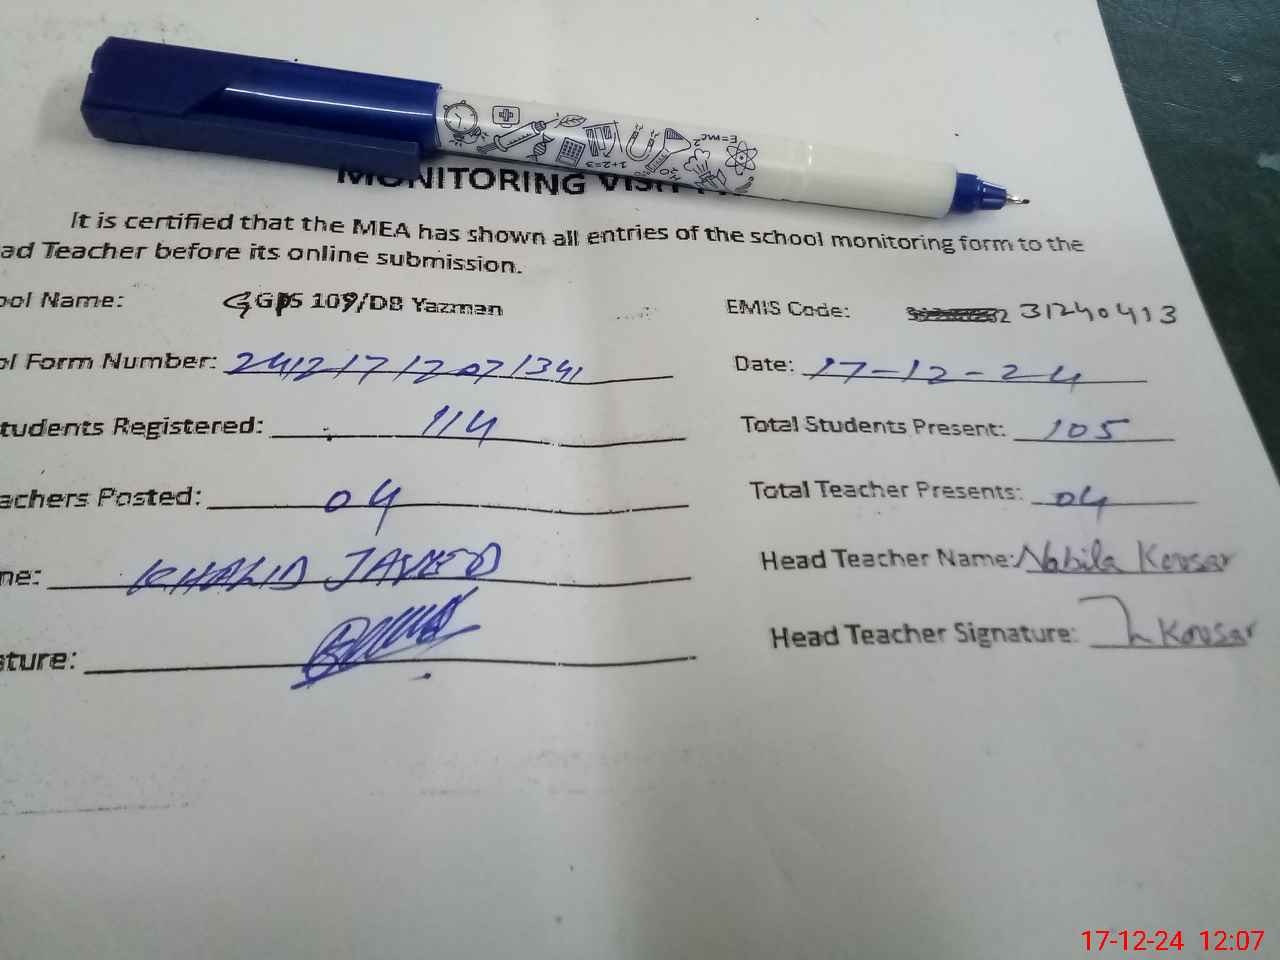 E=mc²
1+2=3
H₂O
MONITORING VISIT
It is certified that the MEA has shown all entries of the school monitoring form to the
ad Teacher before its online submission.
ool Name: GGPS 109/DB Yazman EMIS Code: 31240413
ol Form Number: 24121712071341 Date: 17-12-24
tudents Registered: 114 Total Students Present: 105
achers Posted: 04 Total Teacher Presents: 04
me: KHALID JAVEED Head Teacher Name: Nabila Kousar
ture: Head Teacher Signature: Kousar
17-12-24 12:07